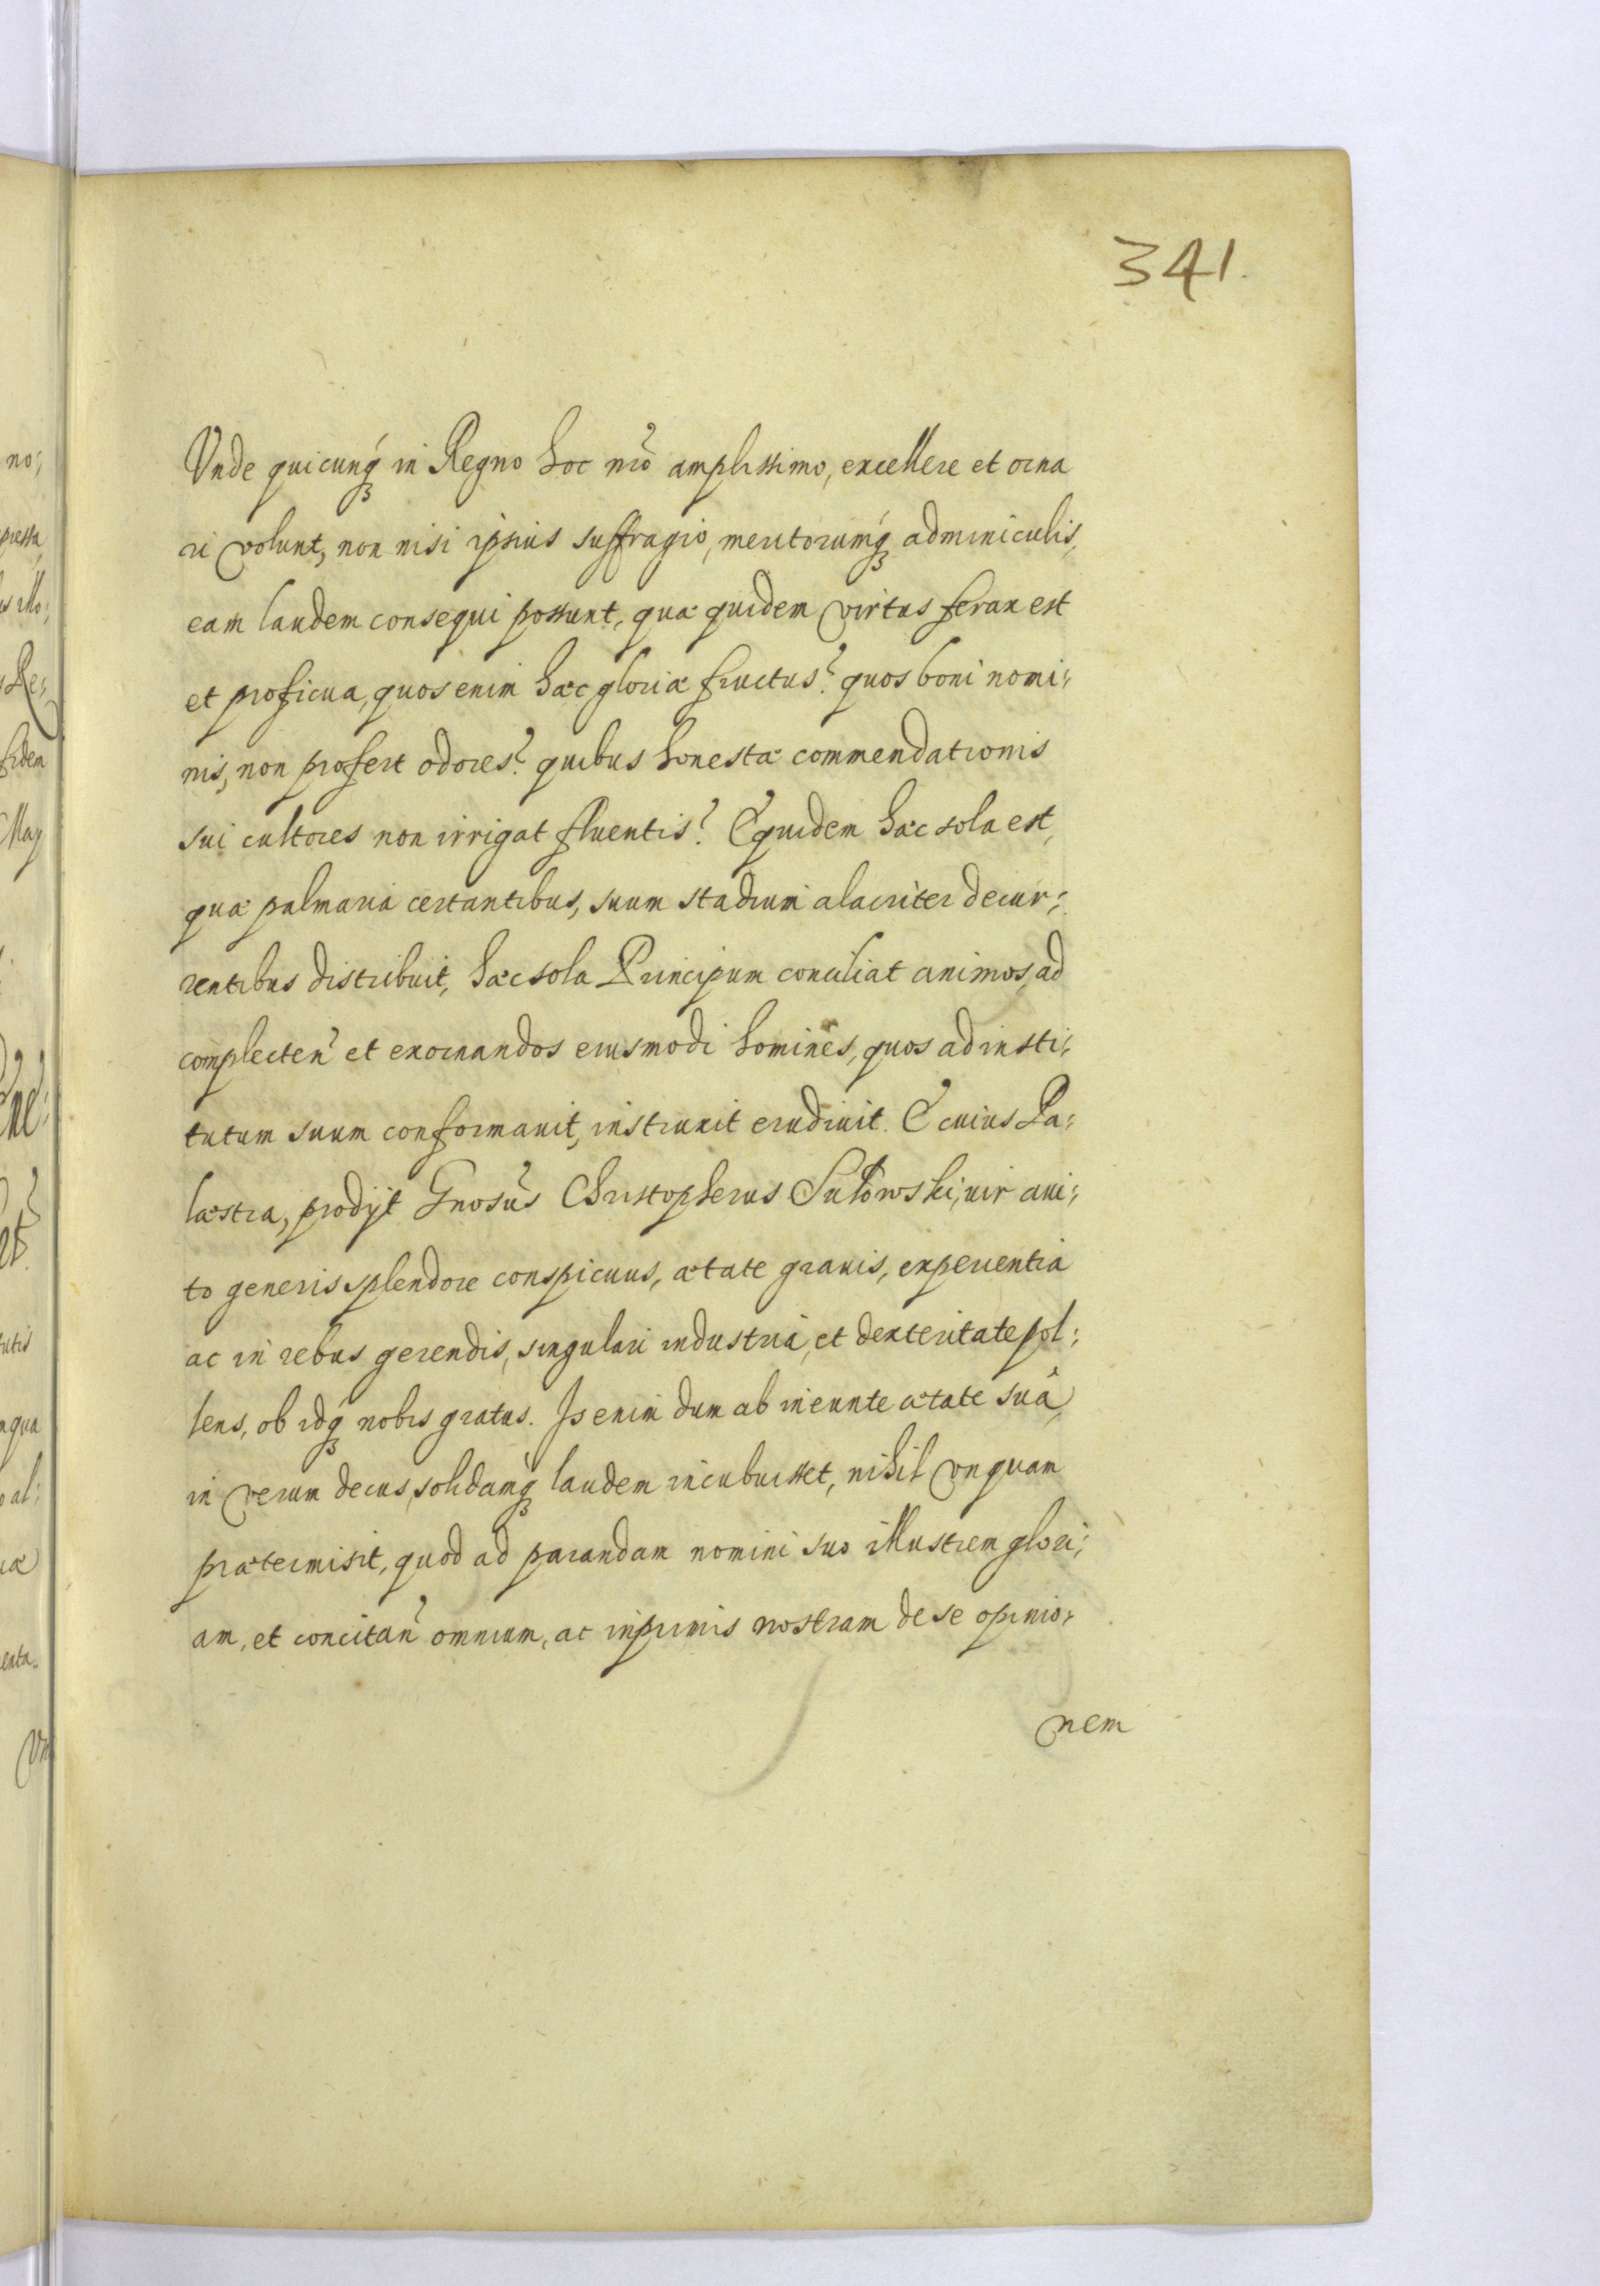 341.
Vnde quicunq́ꝫ in Regno hoc nr̃o amplissimo, excellere et orna
ri volunt, non nisi ipsius suffragio, meritorumq́ꝫ adminiculis,
eam laudem consequi possunt, quæ quidem virtus ferax est
et proficua, quos enim hæc gloriæ fructus? quos boni nomi;
nis, non profert odores? quibus honestæ commendationis
sui cultores non irrigat fluentis? Equidem hæc sola est,
quæ palmaria certantibus, suum stadium alacriter decur;
rentibus distribuit, hæc sola Principum conciliat animos, ad
complecten̾ et exornandos eiusmodi homines, quos ad insti;
tutum suum conformauit, instruxit erudiuit. E cuius Pa;
læstra, prodijt Gnosus̃ Christopherus Sułowski, vir aui;
to generis splendore conspicuus, ætate grauis, experientia
ac in rebus gerendis, singulari industria, et dexteritate pol;
lens, ob idq́ꝫ nobis gratus. Is enim dum ab ineunte ætate suâ,
in verum decus, solidamq́ꝫ laudem incubuisset, nihil vnquam
prætermisit, quod ad parandam nomini suo illustrem glori;
am, et concitan̾ omnium, ac inprimis nostram de se opinio;
nem
no;
pressa
Re;
fidem
May